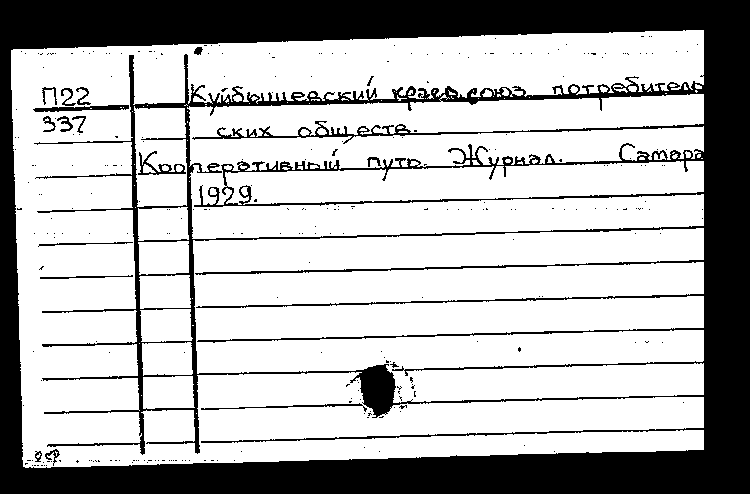 П22 Куйбышевский краев.союз потребитель
337 ских обществ.
Кооперативный путь. Журнал. Самара
1929.